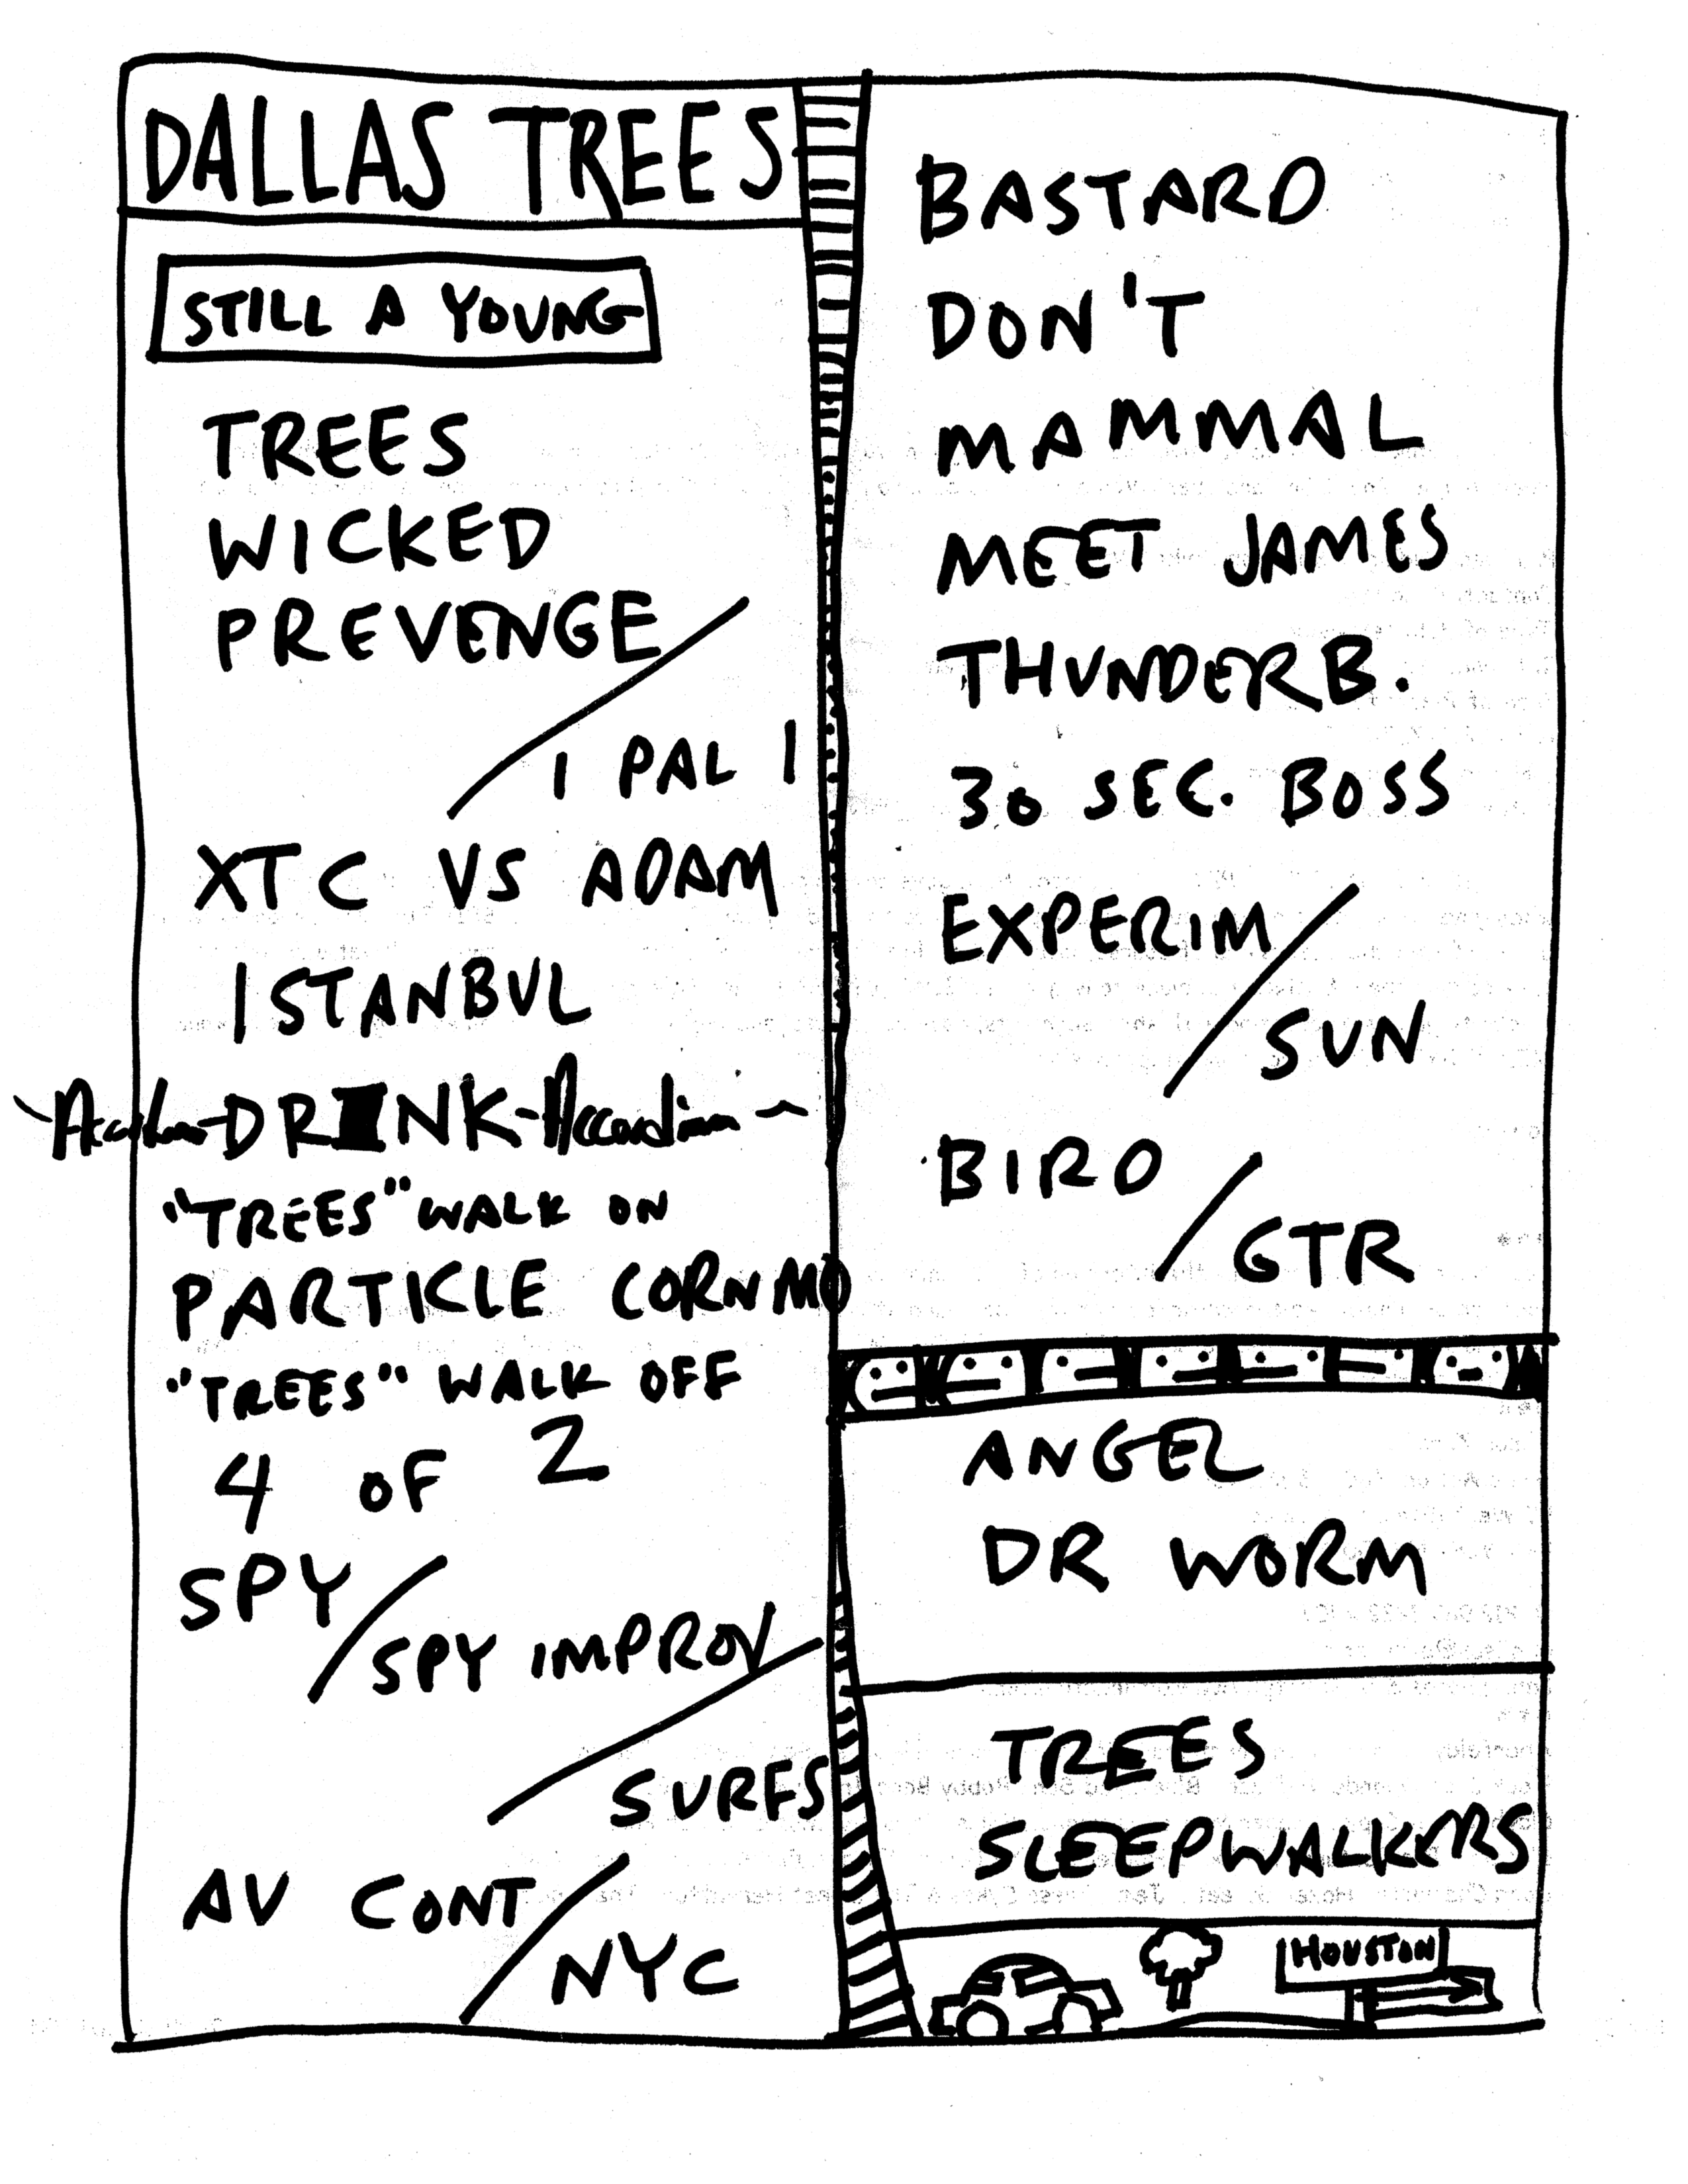 DALLAS TREES
STILL A YOUNG
TREES
WICKED
PREVENGE /
1 PAL 1
XTC VS ADAM
ISTANBUL
DRINK - Accordion -
"TREES" WALK ON
PARTICLE CORN MO
"TREES" WALK OFF
4 OF 2
SPY /
SPY IMPROV /
SURFS
AV CONT /
NYC
BASTARD
DON'T
MAMMAL
MEET JAMES
THUNDERB.
30 SEC. BOSS
EXPERIM /
SUN
BIRD /
GTR
ANGEL
DR WORM
TREES
SLEEPWALKERS
HOUSTON